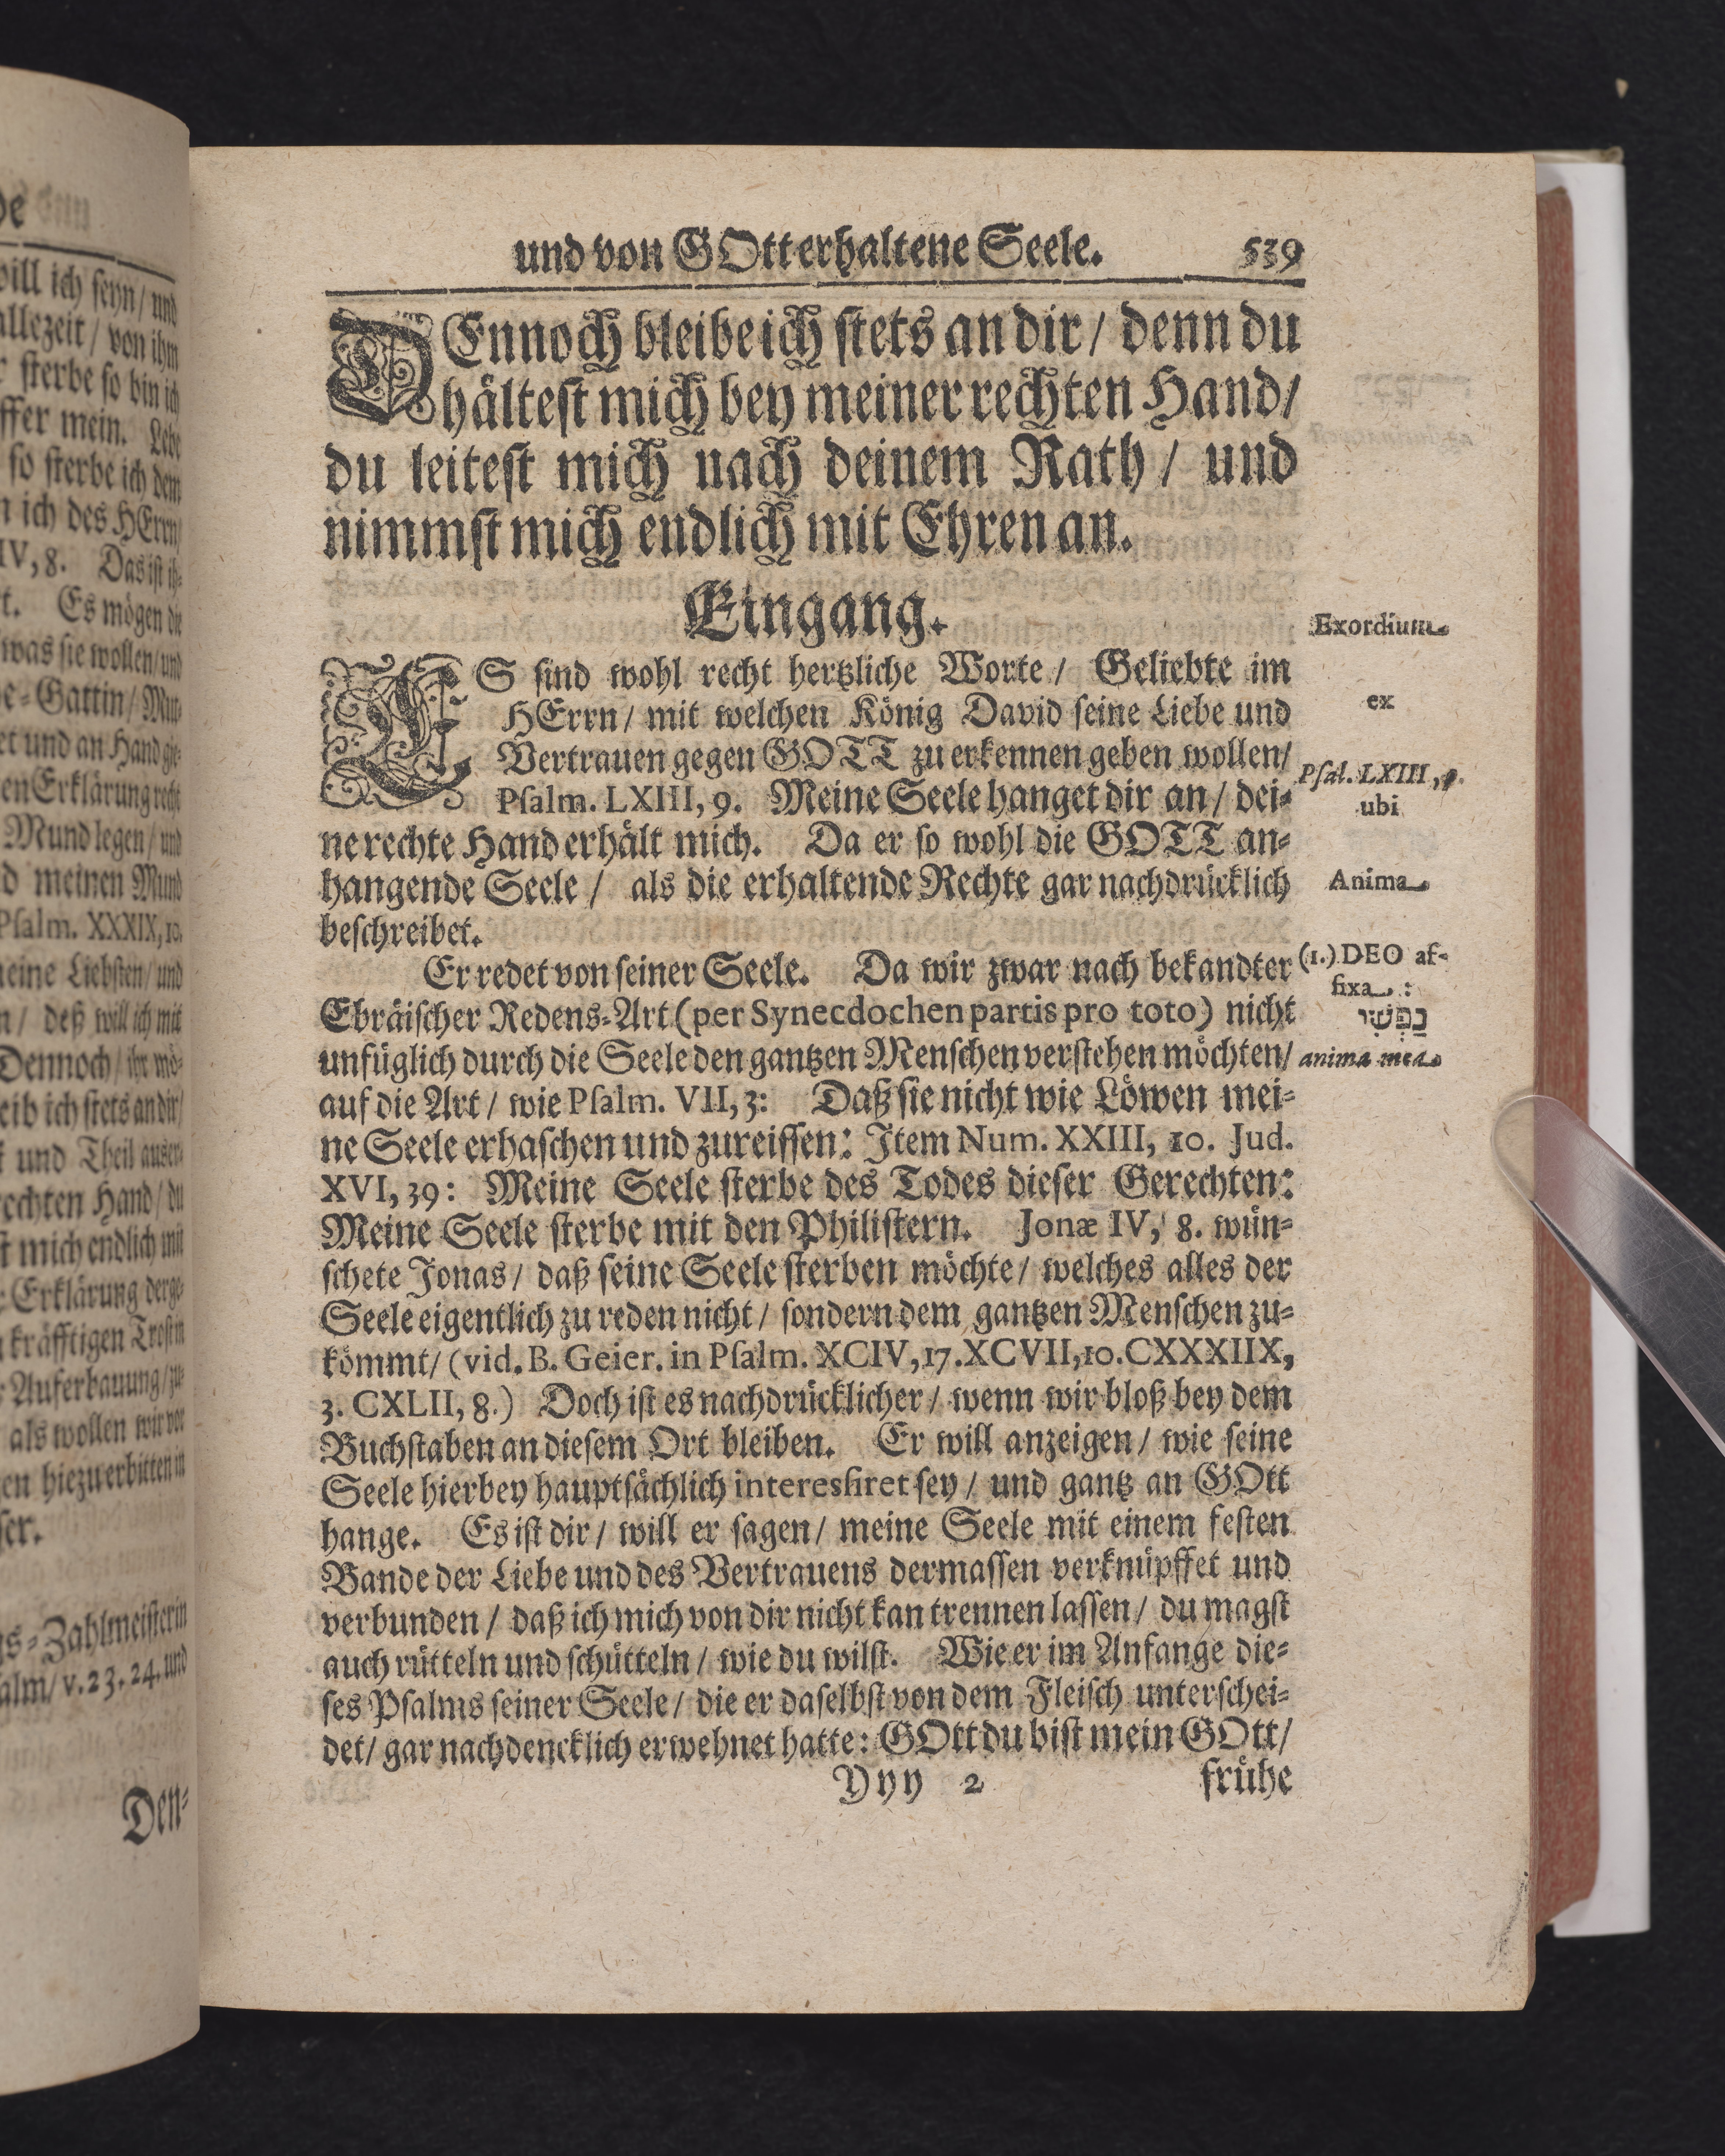 und von GOtt erhaltene Seele. 539
DEnnoch bleibe ich stets an dir / denn du
hältest mich bey meiner rechten Hand /
du leitest mich nach deinem Rath / und
nimmst mich endlich mit Ehren an.
Eingang.
Exordium
ES sind wohl recht hertzliche Worte / Geliebte im
HErrn / mit welchen König David seine Liebe und
ex
Vertrauen gegen GOTT zu erkennen geben wollen /
Psal. LXIII, 9.
Psalm. LXIII, 9. Meine Seele hanget dir an / dei-
ubi
ne rechte Hand erhält mich. Da er so wohl die GOTT an-
hangende Seele / als die erhaltende Rechte gar nachdrücklich
Anima
beschreibet.
Er redet von seiner Seele. Da wir zwar nach bekandter
(1.) DEO af-
fixa :
Ebräischer Redens-Art (per Synecdochen partis pro toto) nicht
נַפְשִׁי
unfüglich durch die Seele den gantzen Menschen verstehen möchten /
anima mea
auf die Art / wie Psalm. VII, 3: Daß sie nicht wie Löwen mei-
ne Seele erhaschen und zureissen: Item Num. XXIII, 10. Jud.
XVI, 39: Meine Seele sterbe des Todes dieser Gerechten:
Meine Seele sterbe mit den Philistern. Jonæ IV, 8. wün-
schete Jonas / daß seine Seele sterben möchte / welches alles der
Seele eigentlich zu reden nicht / sondern dem gantzen Menschen zu-
kömmt / (vid. B. Geier. in Psalm. XCIV, 17. XCVII, 10. CXXXIIX,
3. CXLII, 8.) Doch ist es nachdrücklicher / wenn wir bloß bey dem
Buchstaben an diesem Ort bleiben. Er will anzeigen / wie seine
Seele hierbey hauptsächlich interessiret sey / und gantz an GOtt
hange. Es ist dir / will er sagen / meine Seele mit einem festen
Bande der Liebe und des Vertrauens dermassen verknüpffet und
verbunden / daß ich mich von dir nicht kan trennen lassen / du magst
auch rütteln und schütteln / wie du wilst. Wie er im Anfange die-
ses Psalms seiner Seele / die er daselbst von dem Fleisch unterschei-
det / gar nachdencklich erwehnet hatte: GOtt du bist mein GOtt /
Yyy 2 frühe